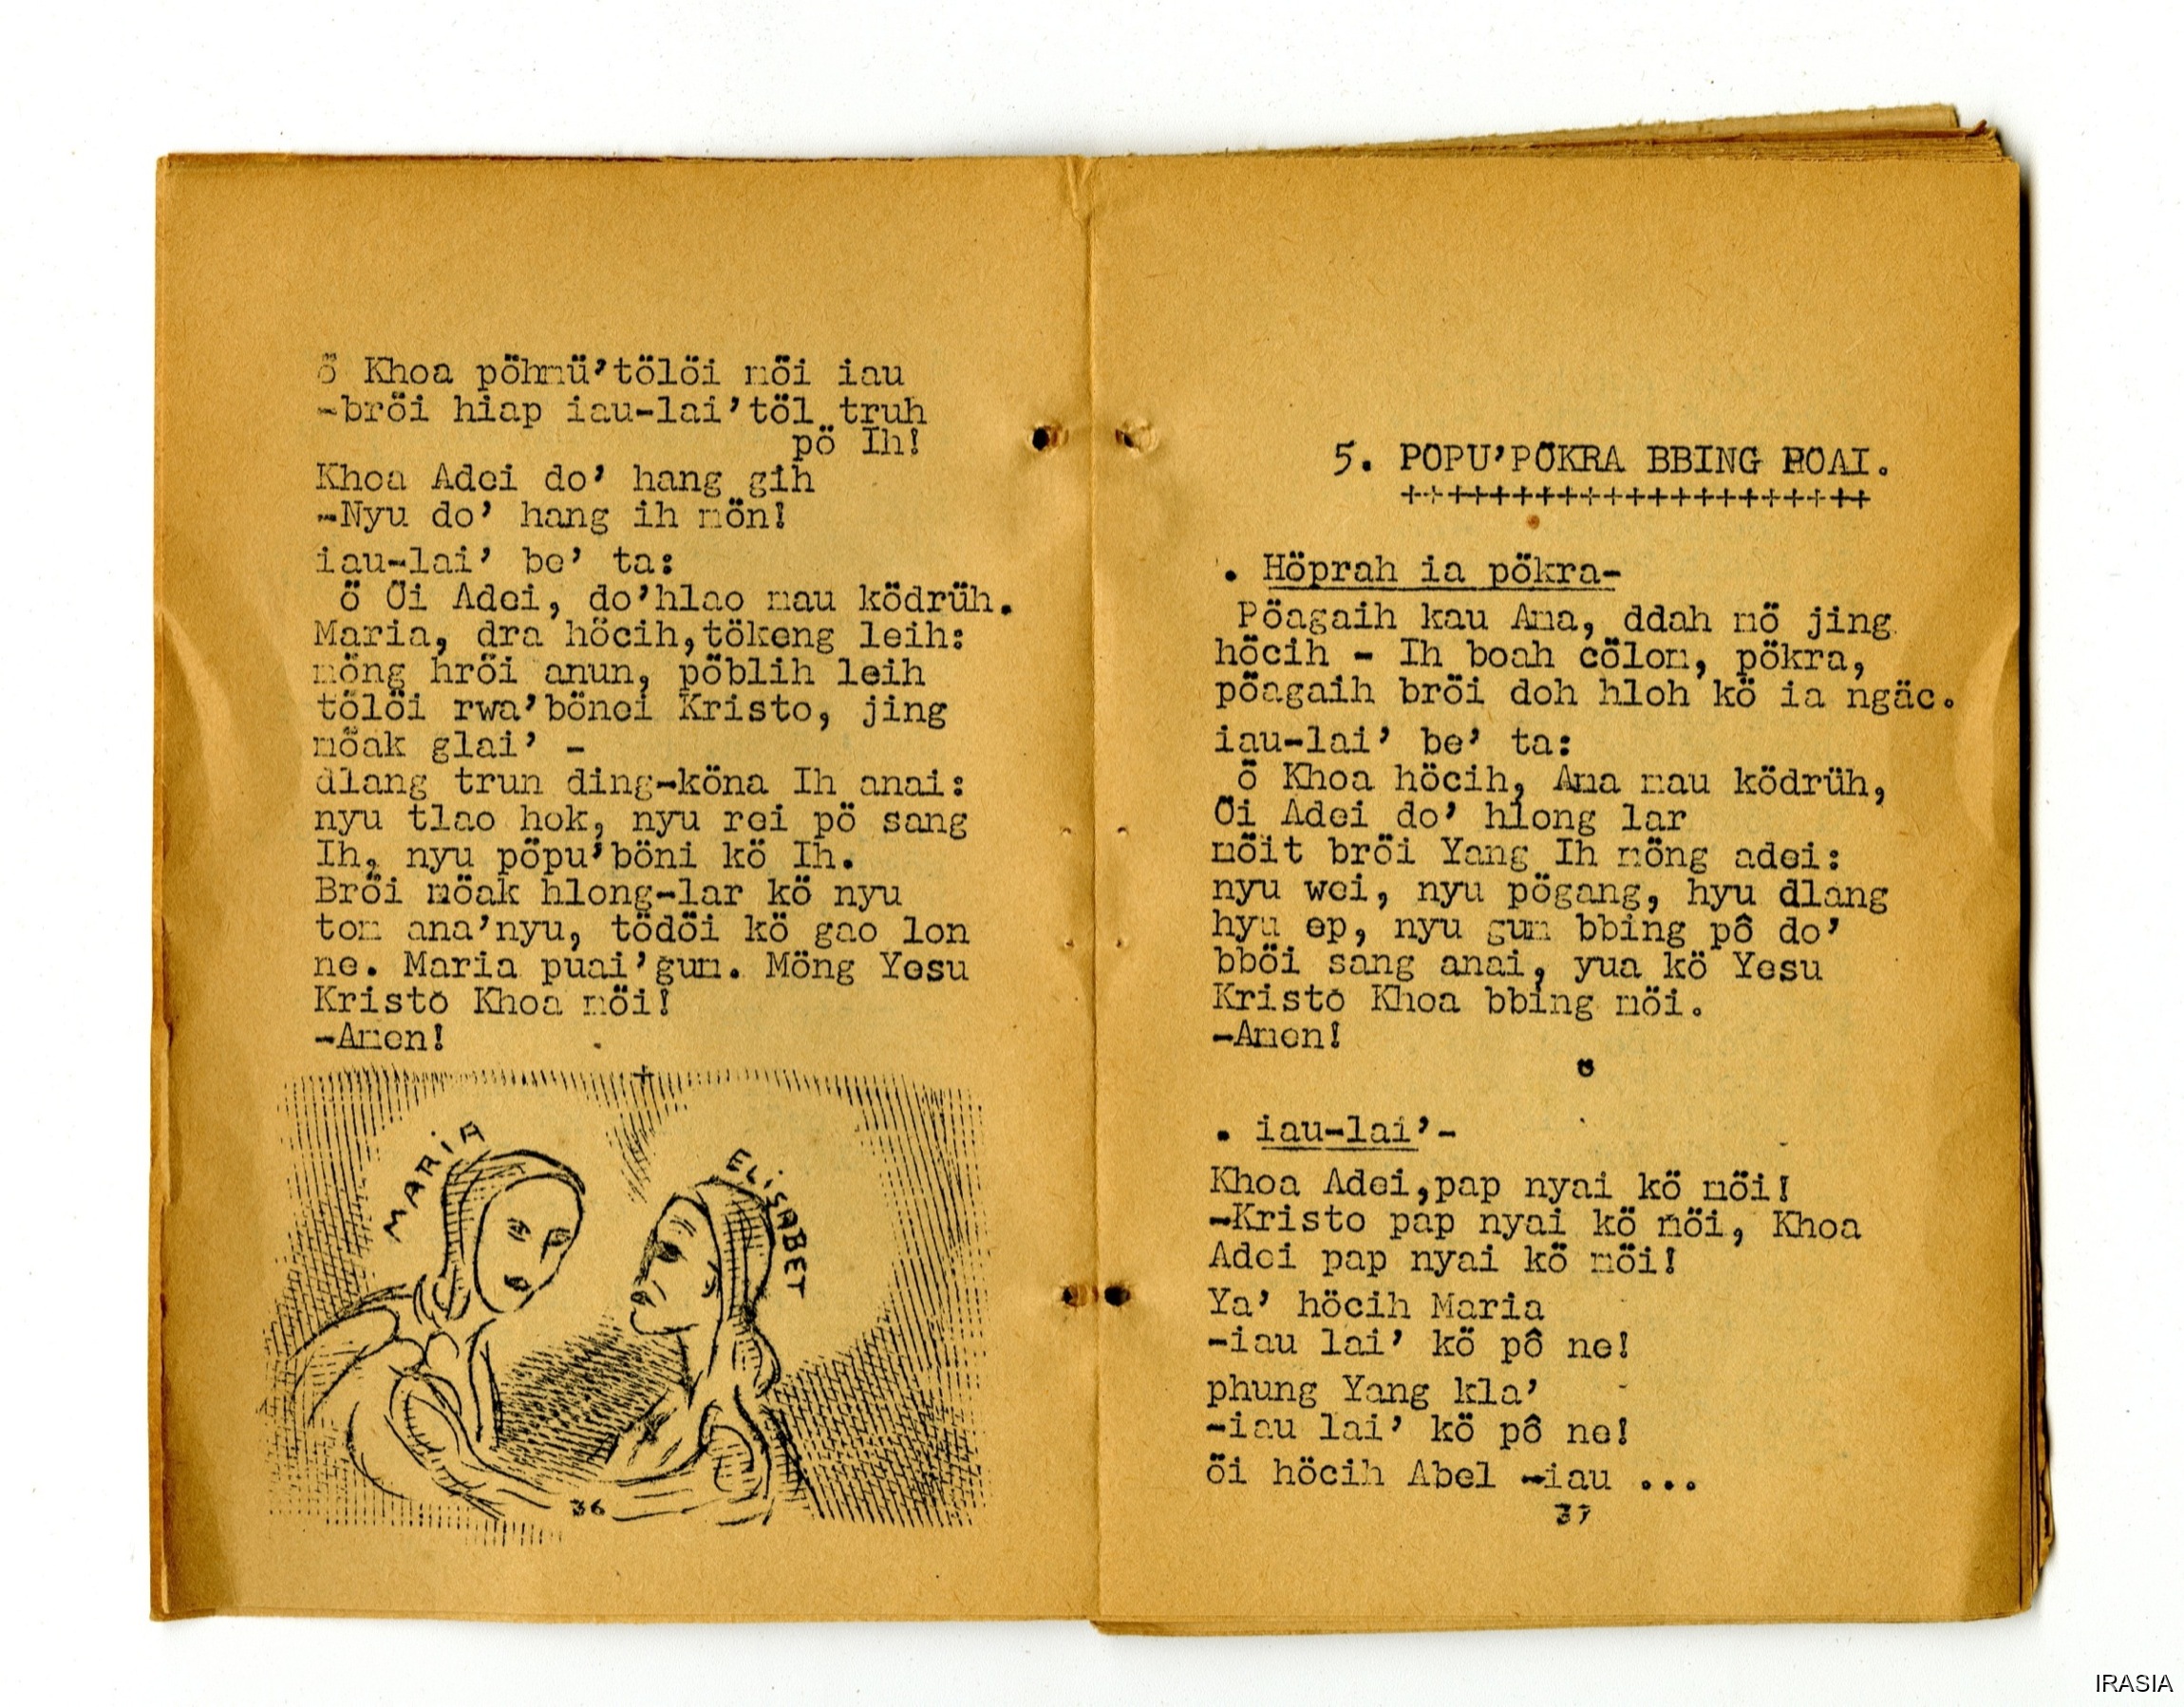 ö Khoa pöhmü’tölöi möi iau
-bröi hiap iau-lai’töl truh
pö Ih!
Khoa Adei do’ hang gih
-Nyu do’ hang ih mön!
iau-lai’ be’ ta:
ö Öi Adei, do’hlao mau ködrüh.
Maria, dra höcih,tökeng leih:
möng hröi anun, pöblih leih
tölöi rwa’bönei Kristo, jing
möak glai’ -
dlang trun ding-köna Ih anai:
nyu tlao hok, nyu rei pö sang
Ih, nyu pöpu’böni kö Ih.
Bröi möak hlong-lar kö nyu
tom ana’nyu, tödöi kö gao lon
ne. Maria puai’gum. Möng Yesu
Kristo Khoa möi!
-Amen!
+
MARiA
ELiSABET
36
5. POPU’PÖKRA BBING ROAI.
+++++++++++++++++++++
. Höprah ia pökra-
Pöagaih kau Ama, ddah mö jing
höcih - Ih boah cölom, pökra,
pöagaih bröi doh hloh kö ia ngäc.
iau-lai’ be’ ta:
ö Khoa höcih, Ama mau ködrüh,
Öi Adei do’ hlong lar
möit bröi Yang Ih möng adei:
nyu wei, nyu pögang, hyu dlang
hyu ep, nyu gum bbing pô do’
bböi sang anai, yua kö Yesu
Kristo Khoa bbing möi.
-Amen!
. iau-lai’-
Khoa Adei,pap nyai kö möi!
-Kristo pap nyai kö möi, Khoa
Adei pap nyai kö möi!
Ya’ höcih Maria
-iau lai’ kö pô ne!
phung Yang kla’
-iau lai’ kö pô ne!
öi höcih Abel -iau ...
37
IRASIA